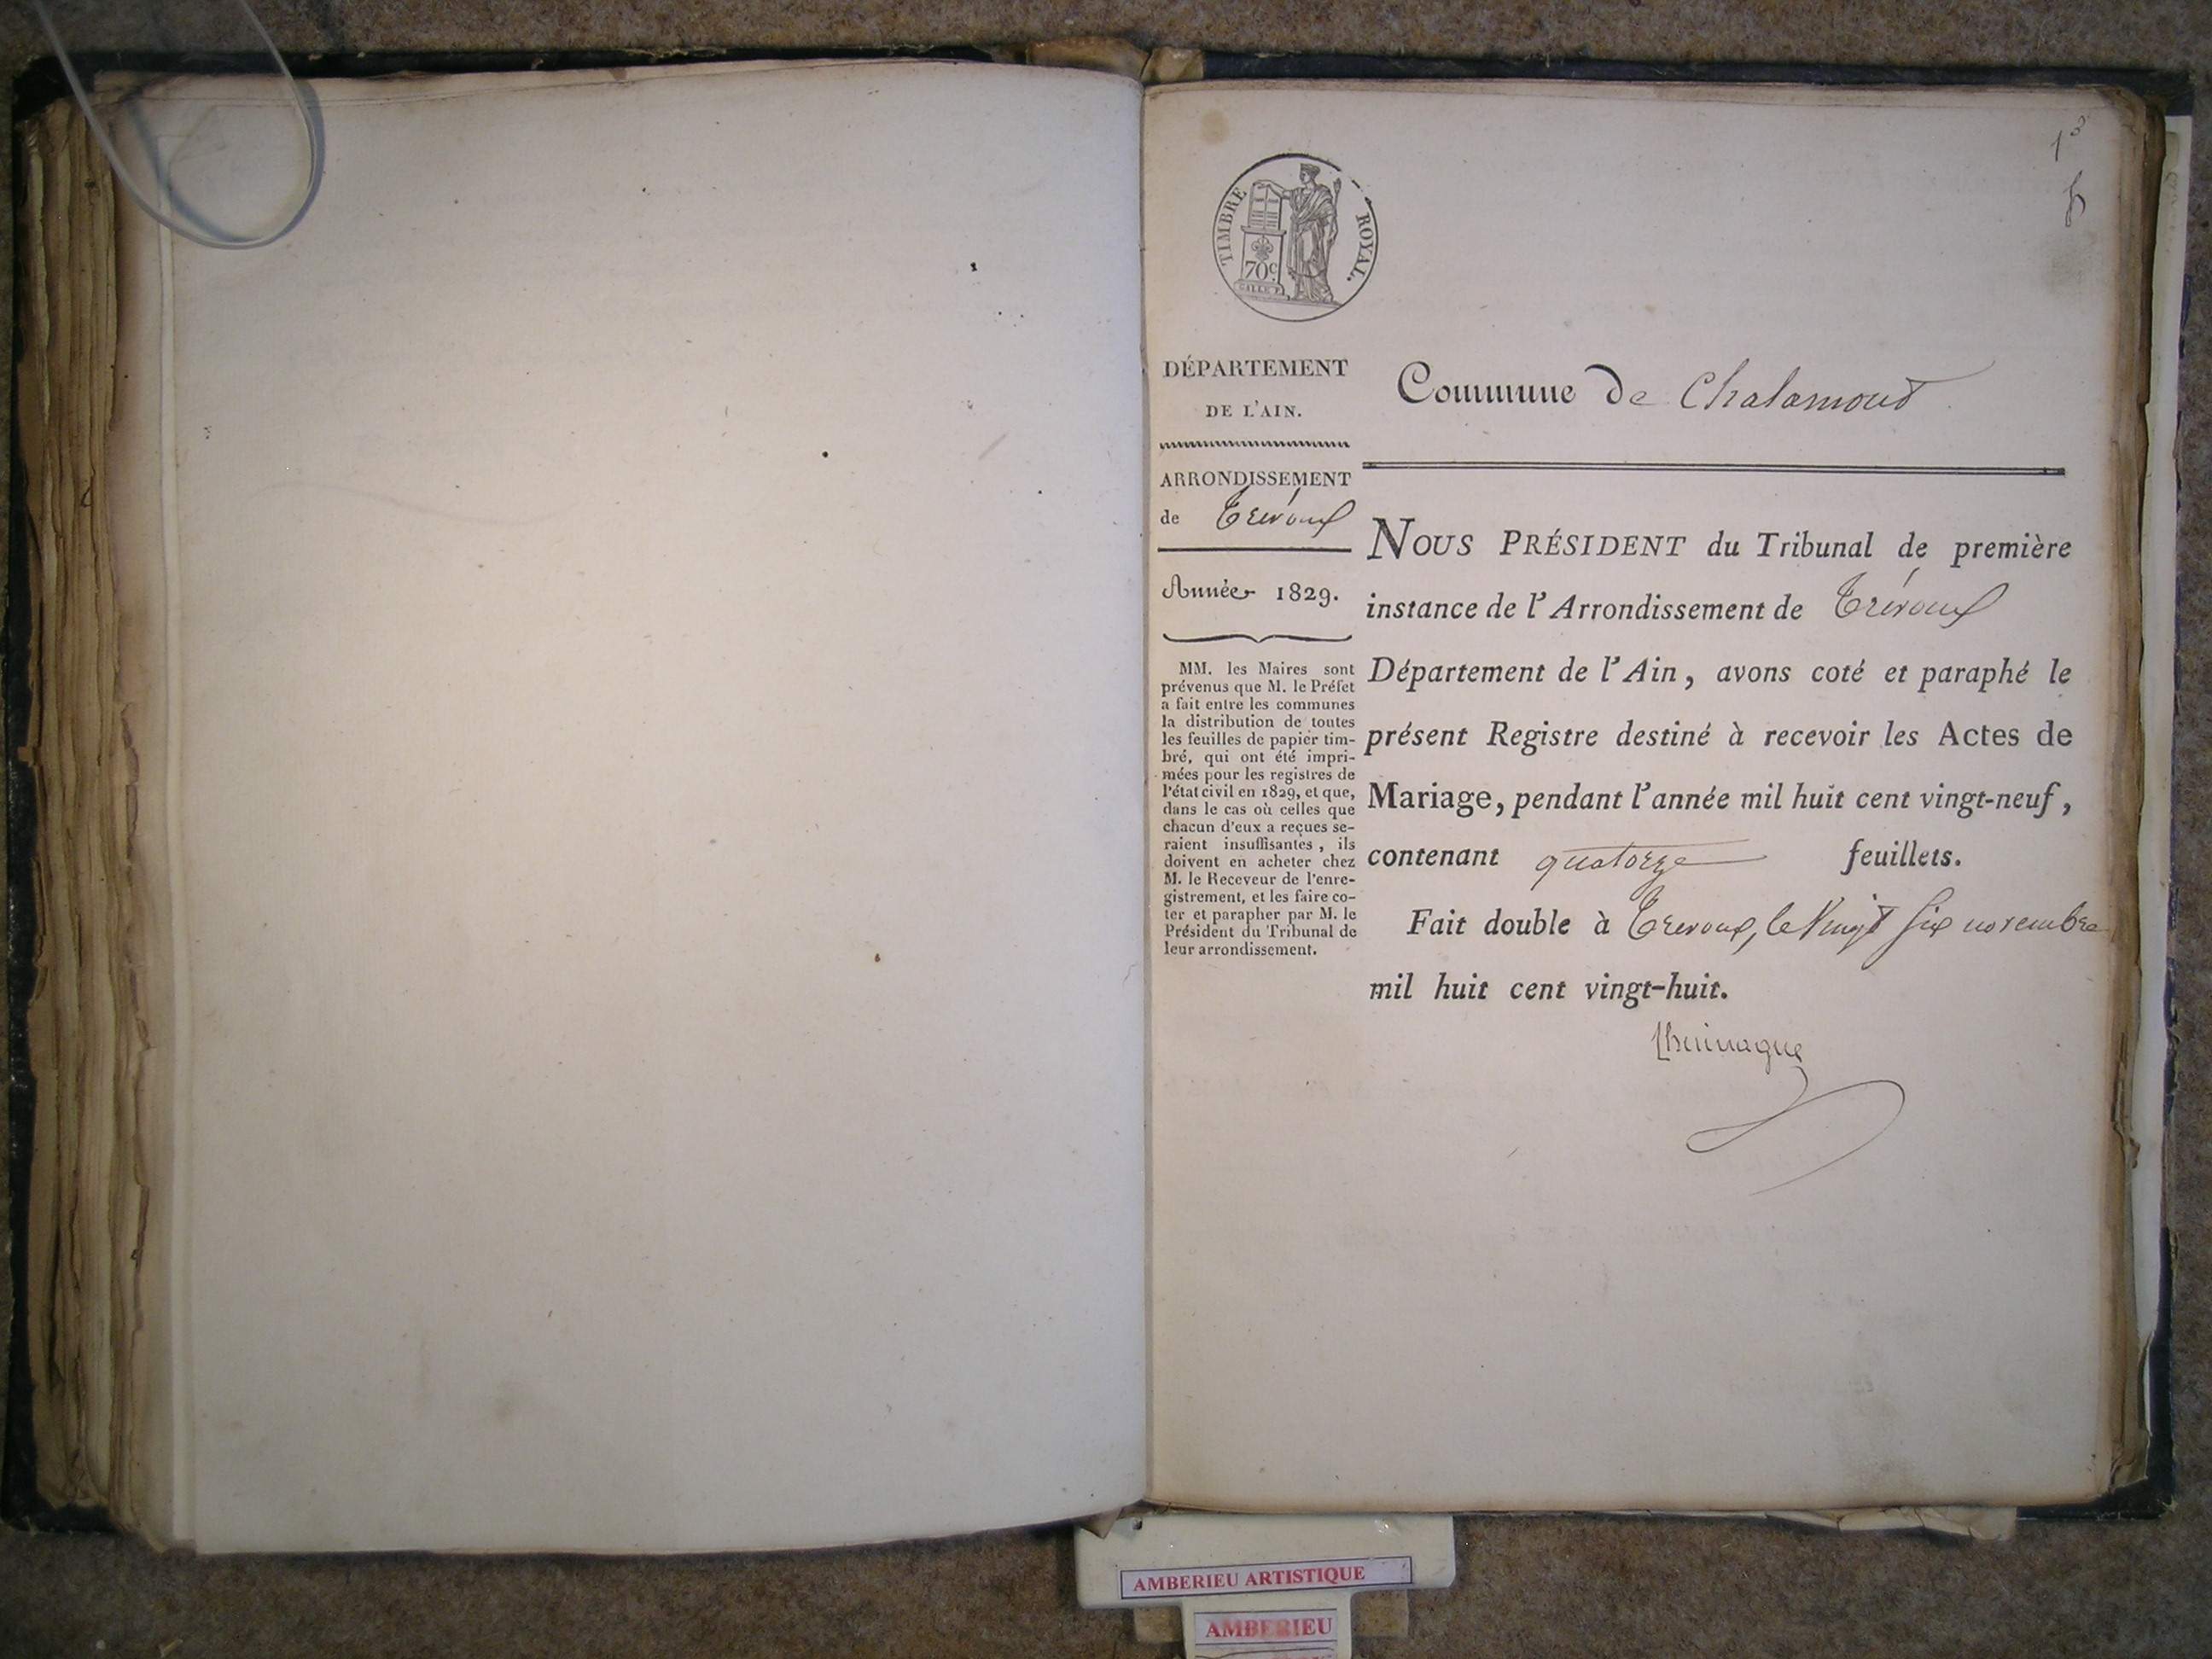 1er
TIMBRE ROYAL.
70c
DÉPARTEMENT
DE L'AIN.
ARRONDISSEMENT
de Trévoux
Année 1829.
MM. les Maires sont
prévenus que M. le Préfet
a fait entre les communes
la distribution de toutes
les feuilles de papier tim-
bré, qui ont été impri-
mées pour les registres de
l'état civil en 1829, et que,
dans le cas où celles que
chacun d'eux a reçues se-
raient insuffisantes, ils
doivent en acheter chez
M. le Receveur de l'enre-
gistrement, et les faire co-
ter et parapher par M. le
Président du Tribunal de
leur arrondissement.
Commune de Chalamont
NOUS PRÉSIDENT du Tribunal de première
instance de l'Arrondissement de Trévoux
Département de l'Ain, avons coté et paraphé le
présent Registre destiné à recevoir les Actes de
Mariage, pendant l'année mil huit cent vingt-neuf,
contenant quatorze feuillets.
Fait double à Trevoux, le Vingt six novembre
mil huit cent vingt-huit.
AMBERIEU ARTISTIQUE
AMBERIEU